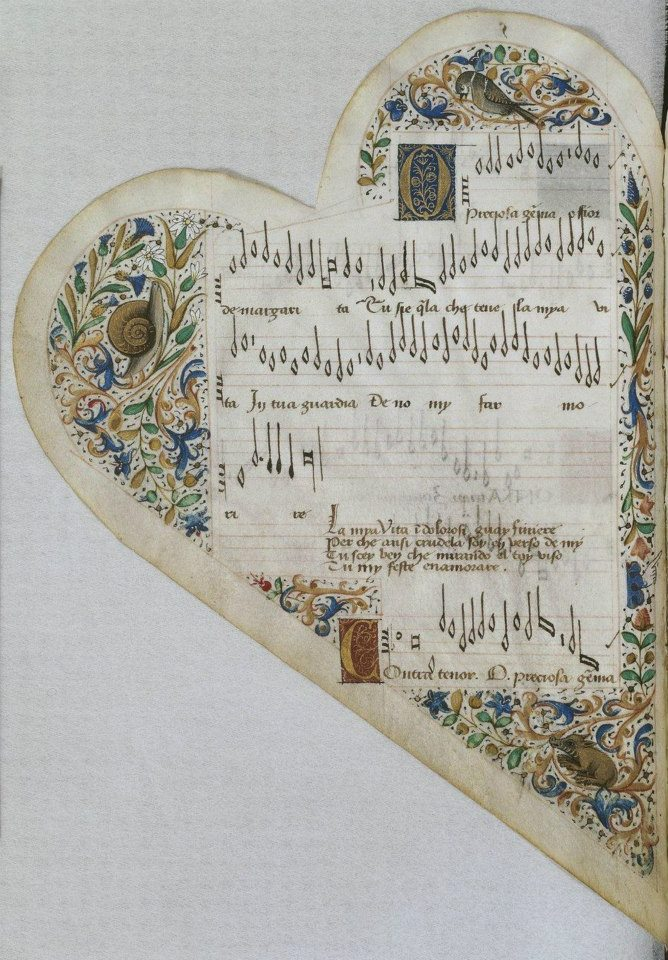 O Preciosa gēma o flor
de margari ta Tu sie q̄la che tene sla mya vi
ta In tua guardia De no my far mo
ri re
La mya Vita ī dolorose guay finiere
Per che ausi crudela soy en verso de my
Tu scey bey che mirando el toy viso
Tu my feste enamorare.
Contrẽ tenor. O. preciosa gēma